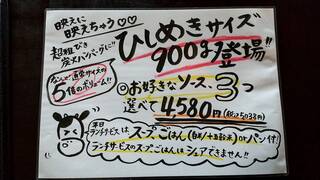 映えに
映えちゃう♡♡
超粗びき
炭火ハンバーグに!!
ひしめきサイズ
900g登場!!
なんと!通常サイズの
5倍のボリューム!!
◎お好きなソース、3つ
選べて4,580円(税込5,038円)
平日
ランチサービスは、スープ、ごはん(白米/十五穀米)orパン付!
ランチサービスのスープごはんはシェアできません!!